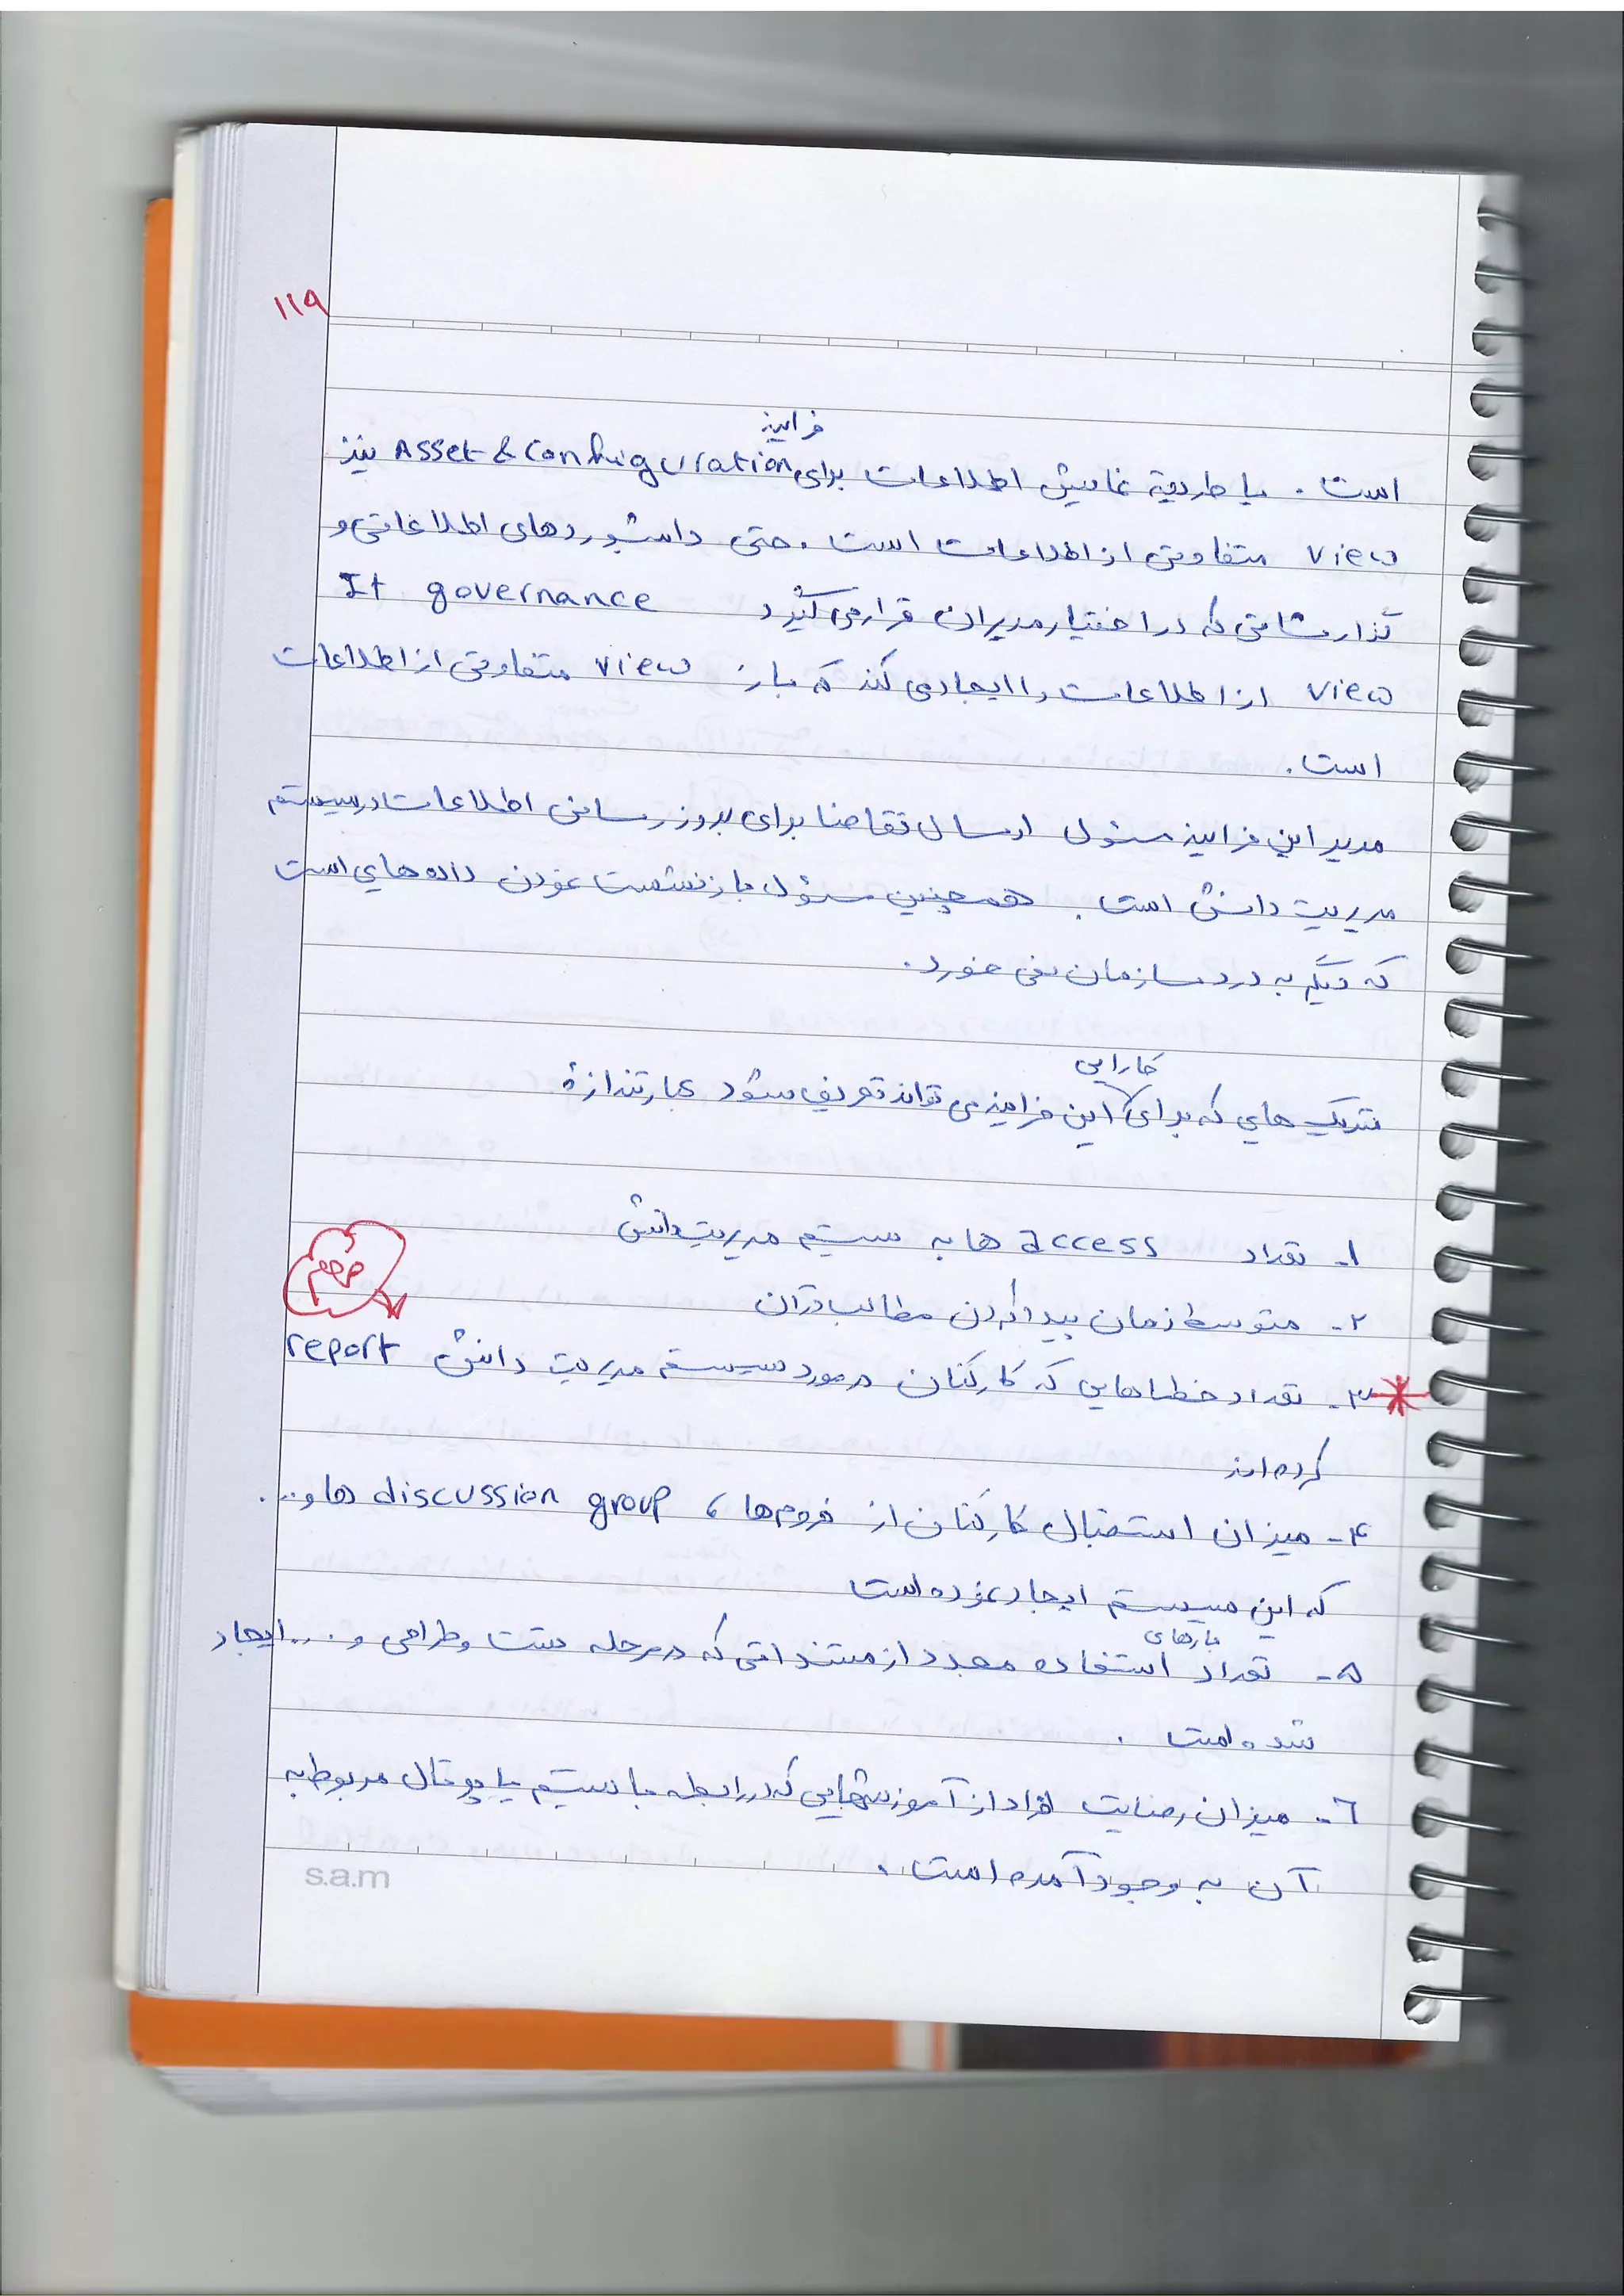 ۱۱۹
فرایند
است. یا طریقهٔ نمایش اطلاعات برای Asset & Configuration نیز
view متفاوتی از اطلاعات است. حتی داشبوردهای اطلاعاتی و
گذارشاتی که در اختیار مدیران قرار می گیرد It governance
view از اطلاعات را ایجاد می کند که باز view متفاوتی از اطلاعات
است.
مدیر این فرایند مسئول ارسال تقاضا برای بروز رسانی اطلاعات در سیستم
مدیریت دانش است. همچنین مسؤل بازنشست نمودن داده هایی است
که دیگر به درد سازمان نمی خورد.
کارایی
متریک هایی که برای این فرایند می تواند تعریف شود عبارتند از:
۱- تعداد access ها به سیستم مدیریت دانش
۲- متوسط زمان پیدا کردن مطالب در آن
۳- تعداد خطاهایی که کارکنان در مورد سیستم مدیریت دانش report
مهم
کرده اند
۴- میزان استقبال کارکنان از فرومها، discussion group ها و...
که این سیستم ایجاد نموده است
بارهای
۵- تعداد استفاده مجدد از مستنداتی که در مرحله تست و طراحی و ... ایجاد
شده است.
۶- میزان رضایت افراد از آموزشهایی که در رابطه با سیستم یا پورتال مربوط به
آن به وجود آمده است.
s.a.m